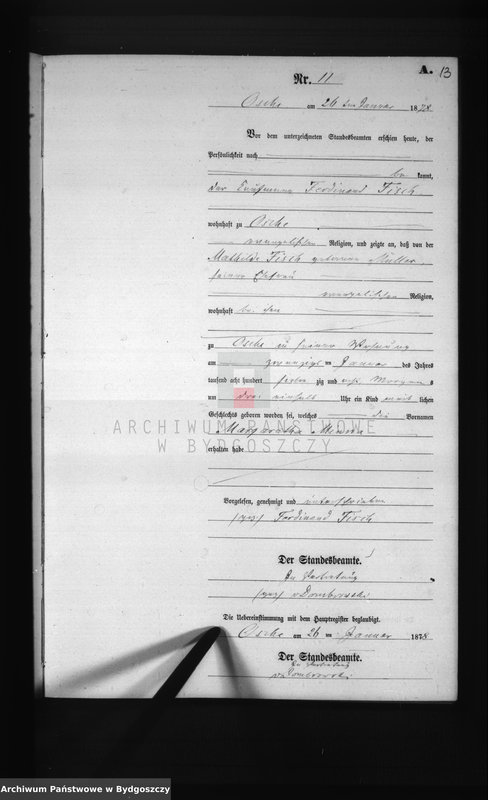 A. 13
Nr. 11
Osche am 26 ten Januar 1878
Vor dem unterzeichneten Standesbeamten erschien heute, der
Persönlichkeit nach
be kannt,
der Kaufmann Ferdinand Fisch
wohnhaft zu Osche
evangelischer Religion, und zeigte an, daß von der
Mathilde Fisch geborenen Müller,
seiner Ehefrau
evangelischen Religion,
wohnhaft bei ihm
zu Osche in seiner Wohnung
am zwanzigsten Januar des Jahres
tausend acht hundert sieben zig und acht Morgens
um drei einhalb Uhr ein Kind weib lichen
Geschlechts geboren worden sei, welches die Vornamen
Margarethe Minna
erhalten habe
Vorgelesen, genehmigt und unterschrieben
(gez) Ferdinand Fisch
Der Standesbeamte.
In Vertretung
(gez) v Dombrowski
Die Uebereinstimmung mit dem Hauptregister beglaubigt.
Osche am 26 ten Januar 1878
Der Standesbeamte.
In Vertretung
v. Dombrowski
ARCHIWUM PAŃSTWOWE
W BYDGOSZCZY
Archiwum Państwowe w Bydgoszczy